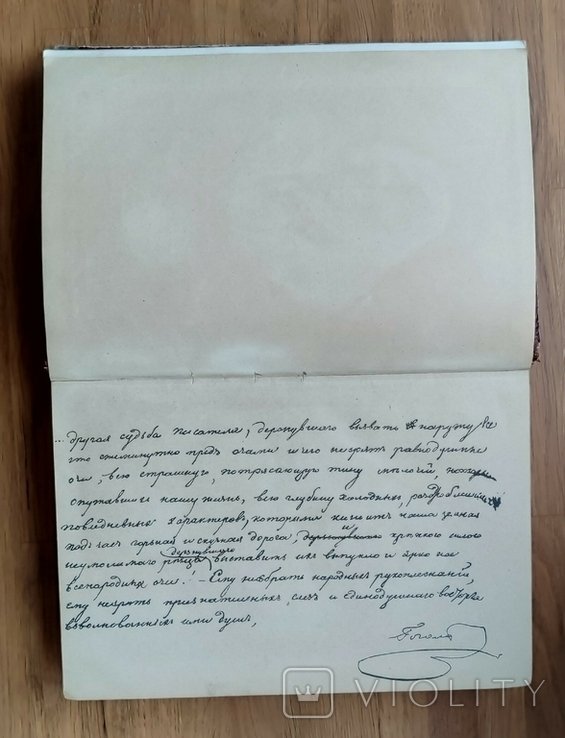 ...другая судьба писателя, дерзнувшаго вызвать наружу все
что ежеминутно предъ очами и чего незрятъ равнодушные
очи, всю страшную, потрясающую тину мелочей,
опутавшихъ нашу жизнь, всю глубину холодныхъ, раздробленныхъ
повседневныхъ характеровъ, которыми кишитъ наша земная
подъ часъ горькая и скучная дорога, и крѣпкою силою
неумолимаго рѣзца дерзнувшаго выставить ихъ выпукло и ярко на
всенародныя очи! - Ему несобрать народныхъ рукоплесканій,
ему незрѣть признательныхъ слезъ и единодушнаго восторга
взволнованныхъ имъ душъ,
Гоголь
VIOLITY